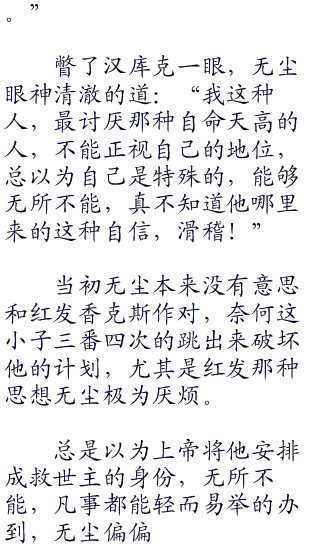 。”
瞥了汉库克一眼，无尘
眼神清澈的道：“我这种
人，最讨厌那种自命天高的
人，不能正视自己的地位，
总以为自己是特殊的，能够
无所不能，真不知道他哪里
来的这种自信，滑稽！”
当初无尘本来没有意思
和红发香克斯作对，奈何这
小子三番四次的跳出来破坏
他的计划，尤其是红发那种
思想无尘极为厌烦。
总是以为上帝将他安排
成救世主的身份，无所不
能，凡事都能轻而易举的办
到，无尘偏偏